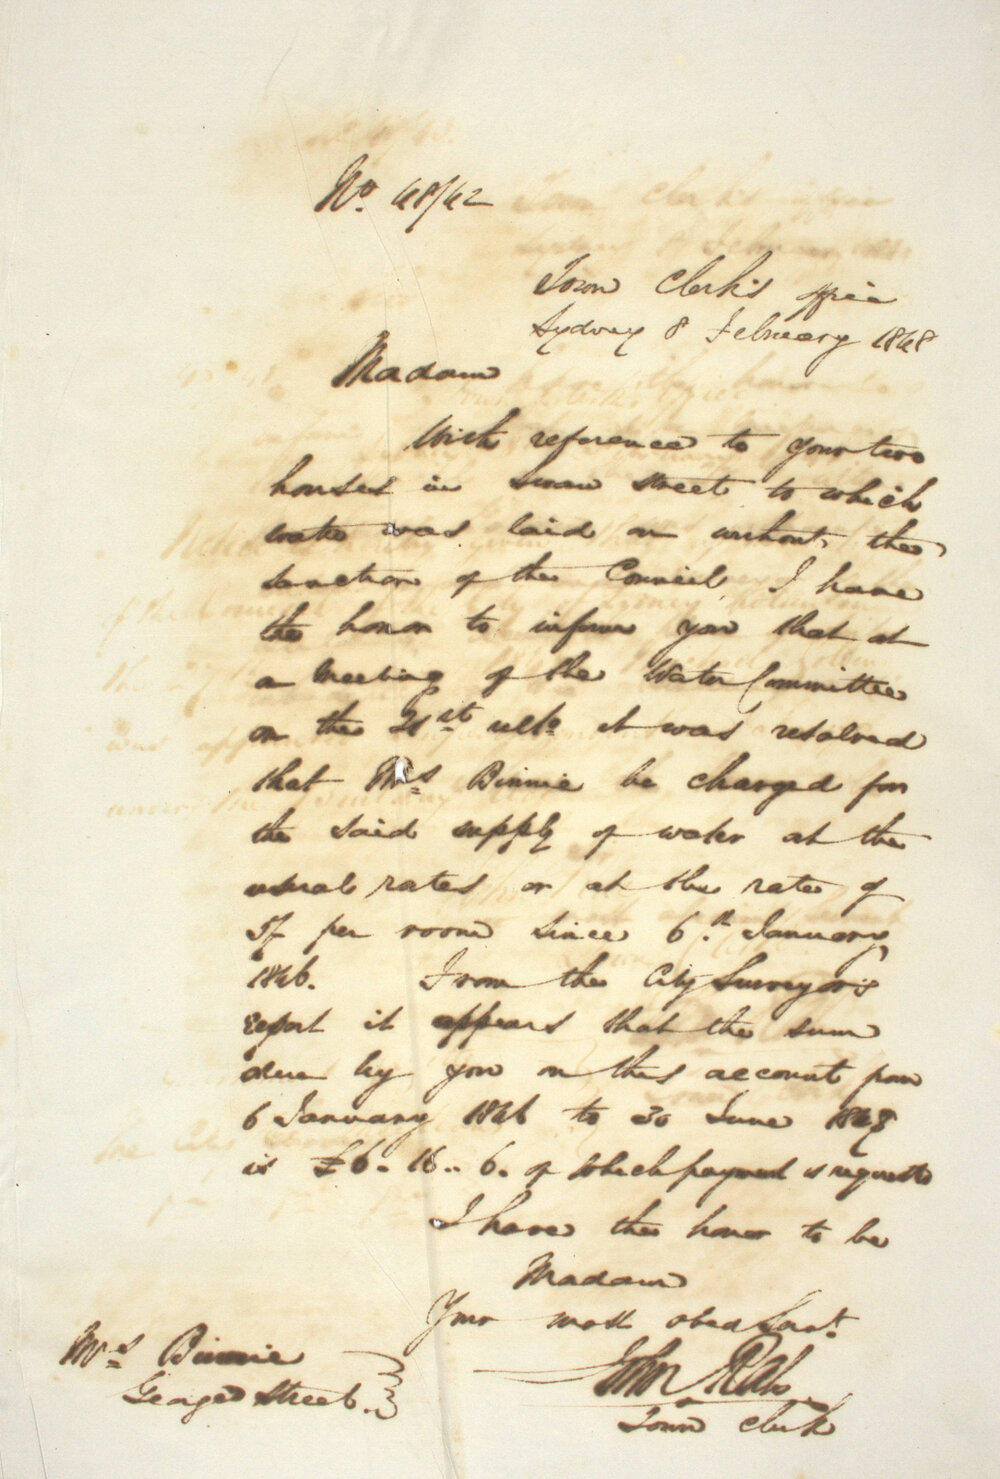 No. 48/42
Town Clerk's office
Sydney 8 February 1848
Madam
With reference to your two
houses in Swan Street to which
water was laid on without the
sanction of the Council, I have
the honor to inform you that at
a Meeting of the Water Committee
on the 21st ulto it was resolved
that Mrs Binnie be charged for
the said supply of water at the
usual rates or at the rate of
5/ per room since 6th January
1846. From the City Surveyor's
report it appears that the sum
due by you on this account from
6 January 1846 to 30 June 1848
is £6. 16.. 6. of which payment is requested
I have the honor to be
Madam
Your most obed Servt.
John Rae
Town Clerk
Mrs Binnie
George Street.